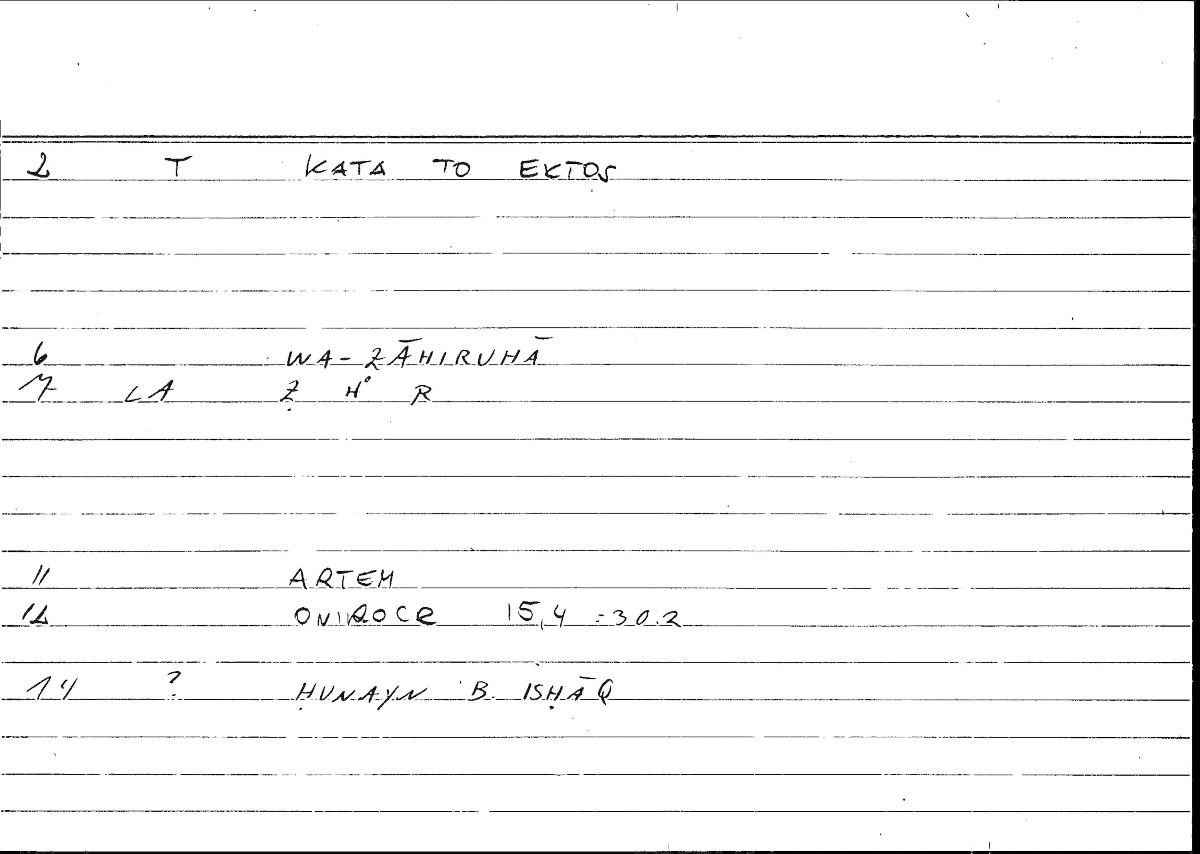 2 T KATA TO EKTOS
6 WA-ZĀHIRUHĀ
7 LA Ẓ H° R
11 ARTEM
12 ONIROCR 15,4 =30.2
14 ? ḤUNAYN B. ISḤĀQ